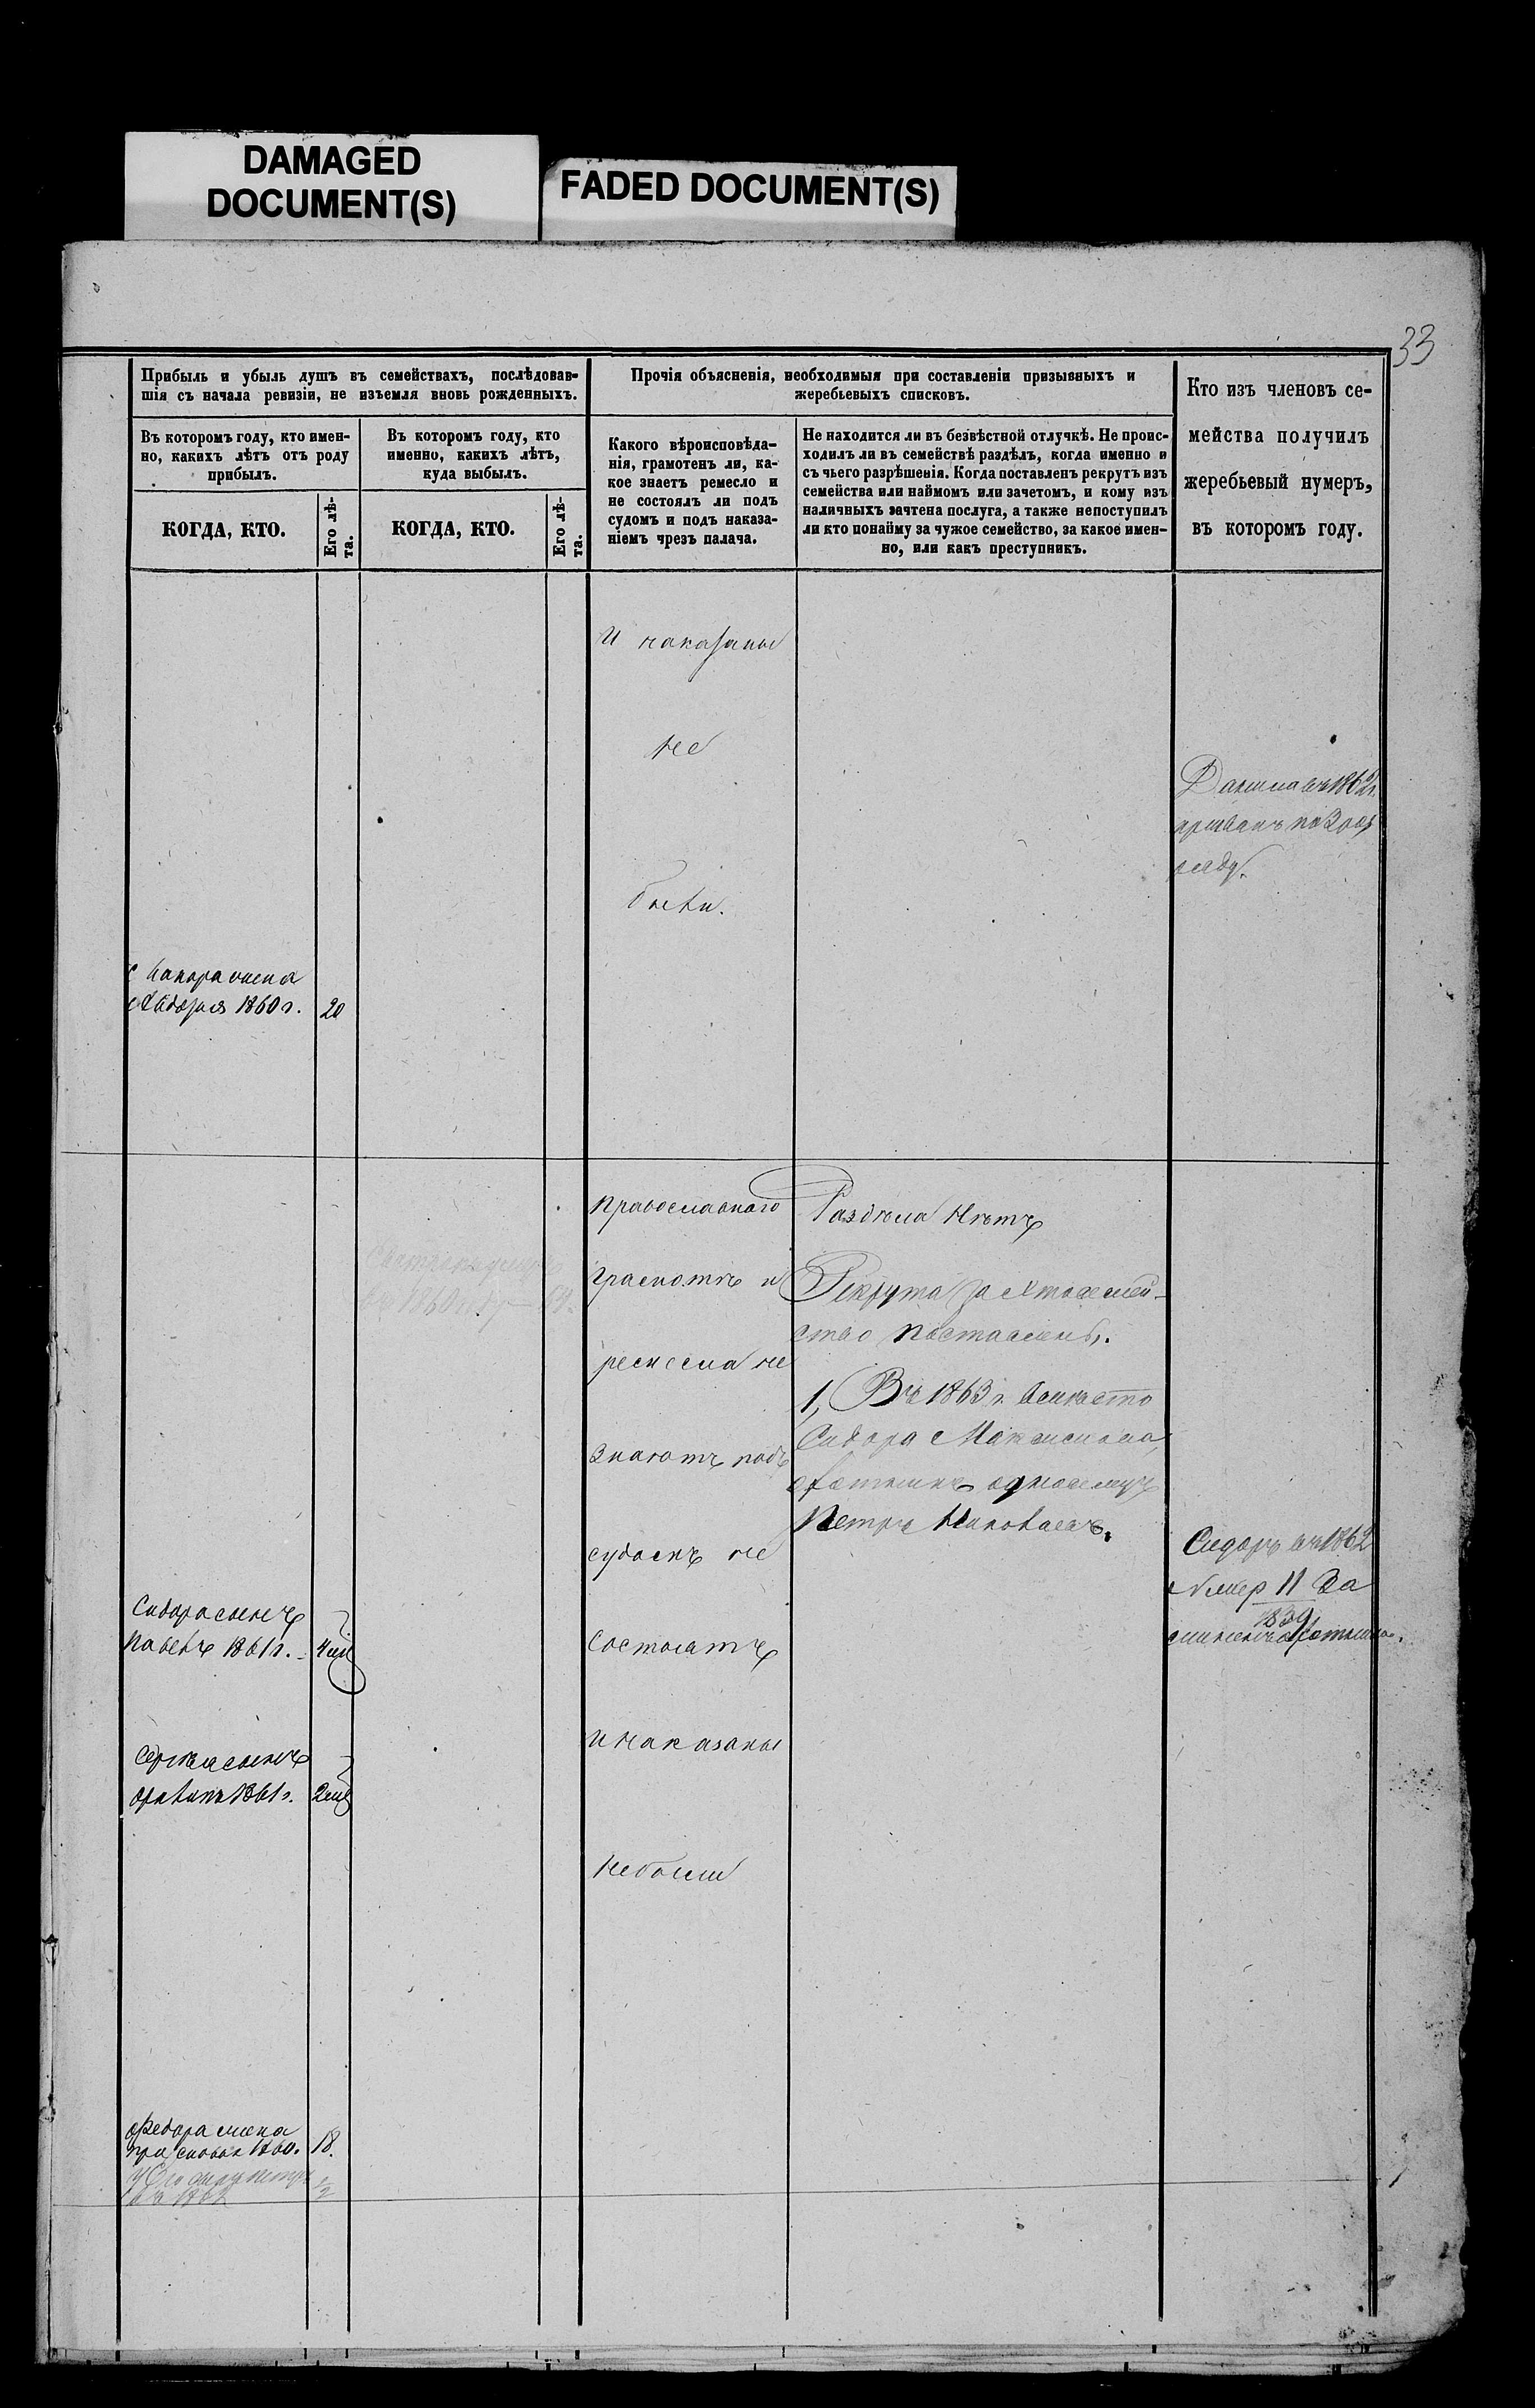 DAMAGED
DOCUMENT(S)
FADED DOCUMENT(S)
33
Прибыль и убыль душъ въ семействахъ, послѣдовав-
шія съ начала ревизіи, не изъемля вновь рожденныхъ.
Въ которомъ году, кто имен-
но, какихъ лѣтъ отъ роду
прибылъ.
КОГДА, КТО.
Его лѣ-
та.
Въ которомъ году, кто
именно, какихъ лѣтъ,
куда выбылъ.
КОГДА, КТО.
Его лѣ-
та.
Прочія объясненія, необходимыя при составленіи призывныхъ и
жеребьевыхъ списковъ.
Какого вѣроисповѣда-
нія, грамотенъ ли, ка-
кое знаетъ ремесло и
не состоялъ ли подъ
судомъ и подъ наказа-
ніемъ чрезъ палача.
Не находится ли въ безвѣстной отлучкѣ. Не проис-
ходилъ ли въ семействѣ раздѣлъ, когда именно и
съ чьего разрѣшенія. Когда поставленъ рекрутъ изъ
семейства или наймомъ или зачетомъ, и кому изъ
наличныхъ зачтена послуга, а также непоступилъ
ли кто понайму за чужое семейство, за какое имен-
но, или какъ преступникъ.
Кто изъ членовъ се-
мейства получилъ
жеребьевый нумеръ,
въ которомъ году.
И наказаны
не
были.
Данила въ 1862 г.
ряду.
1860 г. 20
Православнаго
грамотѣ и
ремесла не
знаютъ подъ
судомъ не
состоятъ
и наказаны
небыли
Раздѣла нѣтъ
Рекрута за
ство поставлены.
1, Въ 1863 г. вмѣсто
Сидора Максимова
Петръ Николаевъ.
Сидоръ въ 1862
нумер 11 за
1839
Сидора сынъ
Павелъ 1861 г. 4
сынъ
1861 г. 2
Федора жена
1860. 18.
въ 1862 1/2